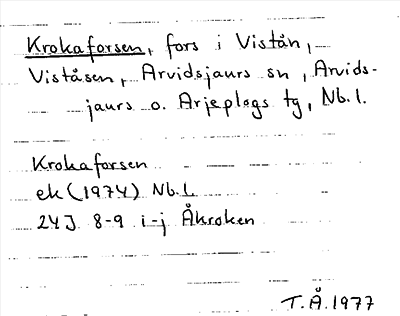 Krokaforsen, fors i Vistån,
Viståsen, Arvidsjaurs sn, Arvids-
jaurs o. Arjeplogs tg, Nb. l.
Krokaforsen
ek (1974) Nb. l.
24J 8-9 i-j Åkroken
T.Å. 1977